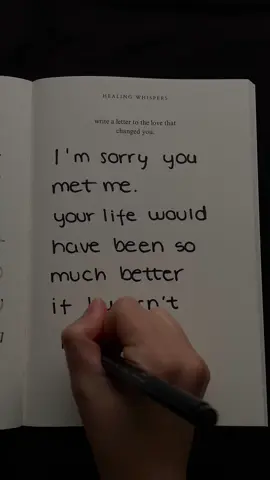 HEALING WHISPERS
write a letter to the love that
changed you.
I'm sorry you
met me.
your life would
have been so
much better
if